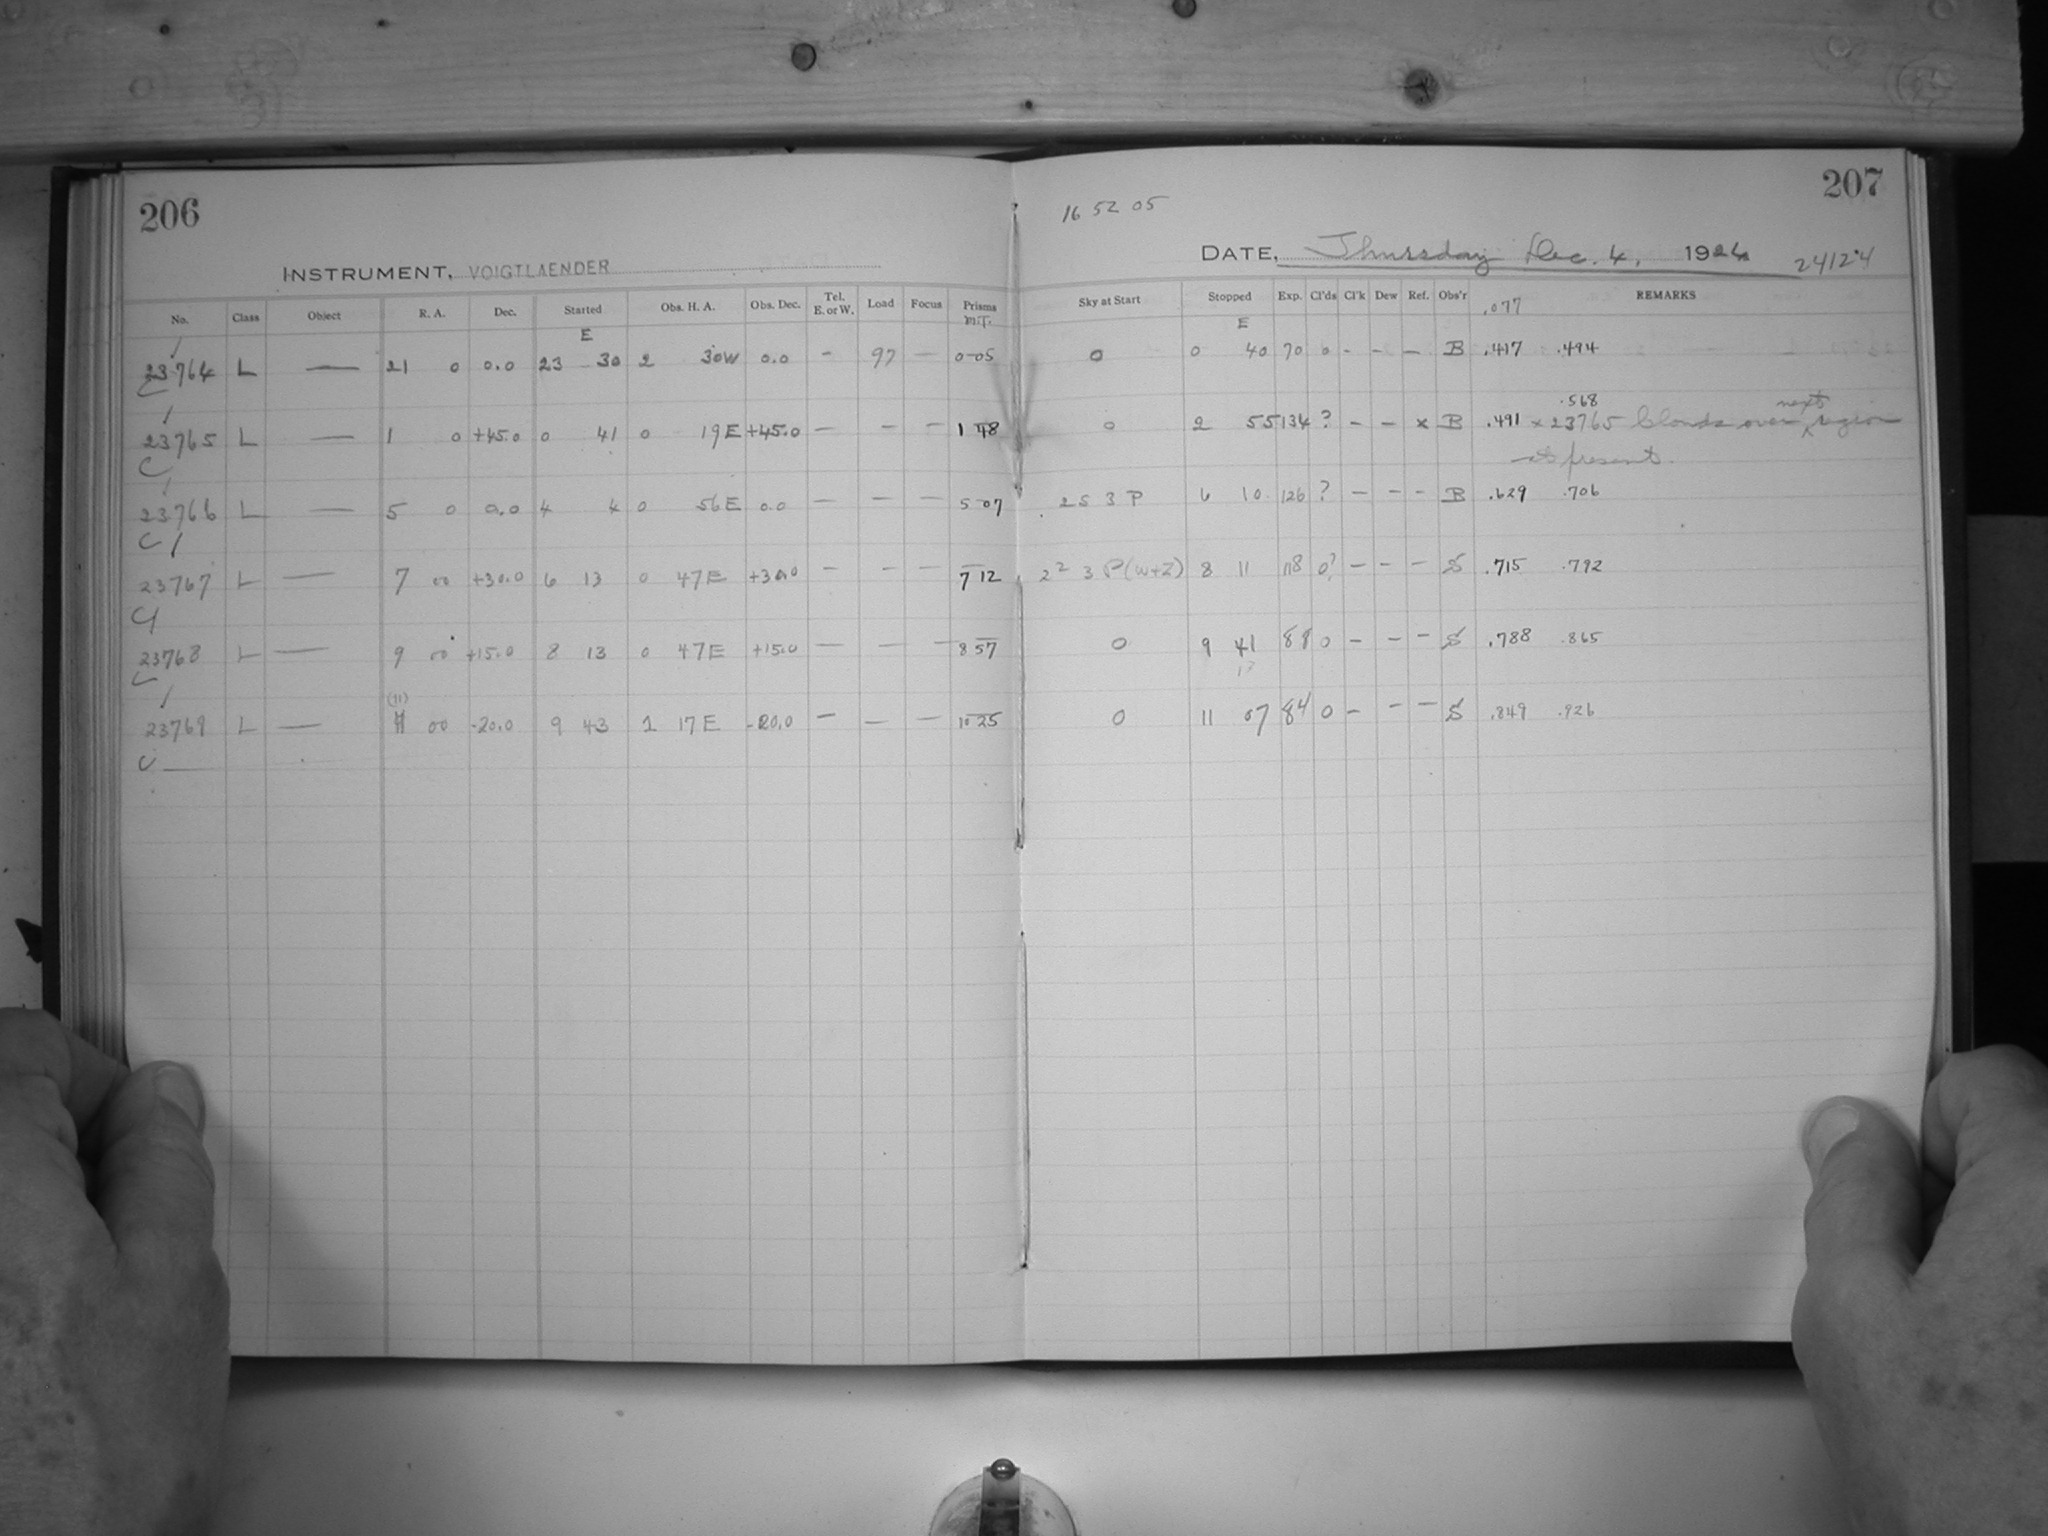 206
INSTRUMENT, VOIGTLAENDER
No. Class Object R. A. Dec. Started Obs. H. A. Obs. Dec. Tel. E. or W. Load Focus Prisms
E M.T.
23764 L — 21 0 0.0 23 30 2 30W 0.0 - 97 — 0 05
23765 L — 1 0 +45.0 0 41 0 19E +45.0 — - — 1 48
23766 L — 5 0 0.0 4 4 0 56E 0.0 — — — 5 07
23767 L — 7 00 +30.0 6 13 0 47E +30.0 — - — 7 12
23768 L — 9 00 +15.0 8 13 0 47E +15.0 — — — 8 57
(11)
23769 L — 00 -20.0 9 43 1 17E -20.0 — — — 10 25
207
16 52 05
DATE, Thursday Dec. 4, 1924 24124
Sky at Start Stopped Exp. Cl'ds Cl'k Dew Ref. Obs'r REMARKS
E .077
0 0 40 70 0 - - — B .417 .494
.568 next
0 2 55 134 ? — — x B .491 x 23765 Clouds over region
at present.
2 5 3 P 6 10 126 ? — - - B .629 .706
2 2 3 P(W+Z) 8 11 118 0? — — — S .715 .792
0 9 41 88 0 - - - S .788 .865
0 11 07 84 0 - - — S .849 .926